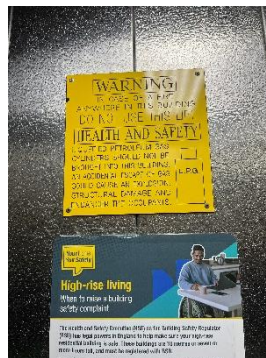 WARNING
IN CASE OF FIRE
ANYWHERE IN THIS BUILDING
DO NOT USE THIS LIFT
HEALTH AND SAFETY
LIQUEFIED PETROLEUM GAS
CYLINDERS SHOULD NOT BE
BROUGHT INTO THIS BUILDING.
AN ACCIDENTAL ESCAPE OF GAS
COULD CAUSE AN EXPLOSION,
STRUCTURAL DAMAGE AND
ENDANGER THE OCCUPANTS.
L.P.G.
High-rise living
When to raise a building
safety complaint
The Health and Safety Executive (HSE) as the Building Safety Regulator
(BSR) has legal powers in England to help make sure your high-rise
residential building is safe. These buildings are 18 metres or seven or
more floors tall, and must be registered with BSR.